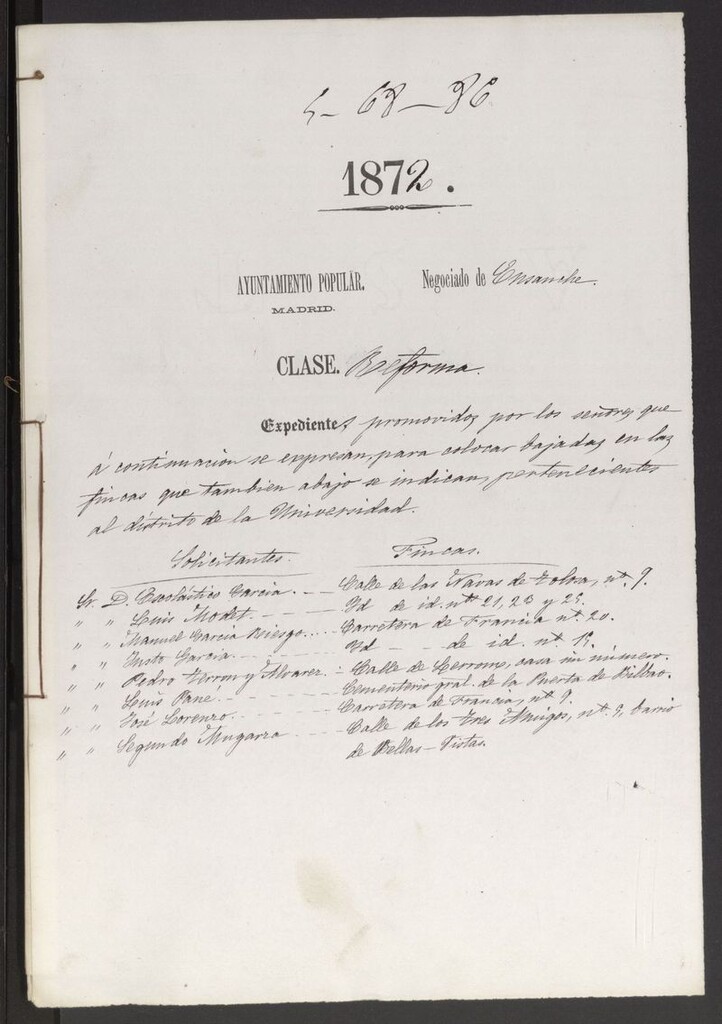 5-68-86
1872.
AYUNTAMIENTO POPULAR. Negociado de Ensanche.
MADRID.
CLASE. Reforma.
Expedientes promovidos por los señores que
á continuacion se expresan, para colocar bajadas en las
fincas que tambien abajo se indican, pertenecientes
al distrito de la Universidad.
Solicitantes. Fincas.
Sr. D. Escolástico Garcia. Calle de las Navas de Tolosa, nº 9.
" " Luis Modet. Id de id. nos 21, 23 y 25.
" " Manuel Garcia Riesgo.... Carretera de Francia nº 20.
" " Justo Garcia. Id de id. nº
" " Pedro Ferron y Alvarez. Calle de casa sin número.
" " Luis Pané. Cementerio gral. de la Puerta de Bilbao.
" " José Lorenzo. Carretera de Francia, nº 9.
" " Segundo Mugarza Calle de los Tres Amigos, nº 9, barrio
de Bellas-Vistas.